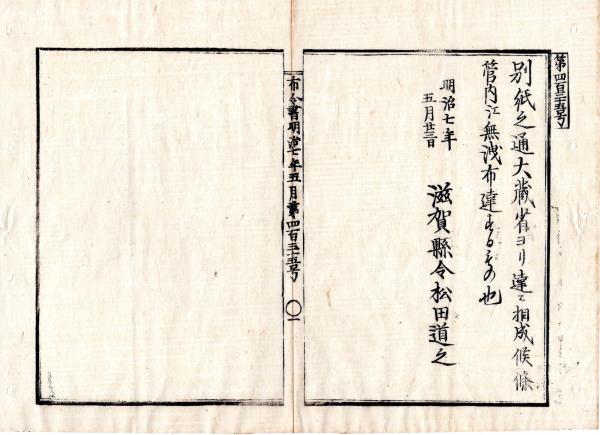 第四百三十五号
別紙之通大蔵省ヨリ達ニ相成候條
管内江無洩布達するもの也
明治七年
五月廿三日
滋賀縣令松田道之
布令書明治七年五月第四百三十五号
一